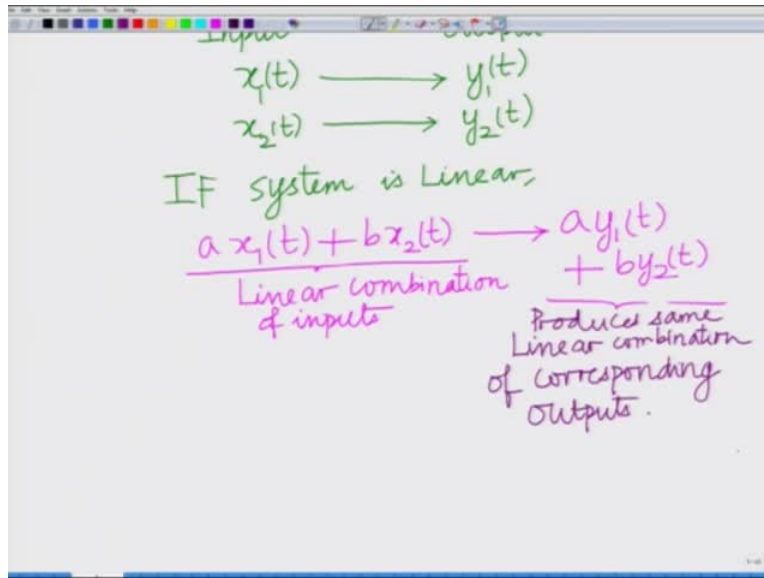 Input Output
x₁(t) ⟶ y₁(t)
x₂(t) ⟶ y₂(t)
IF system is Linear,
a x₁(t) + b x₂(t) ⟶ a y₁(t)
+ b y₂(t)
Linear combination
of inputs
Produces same
Linear combination
of corresponding
outputs.